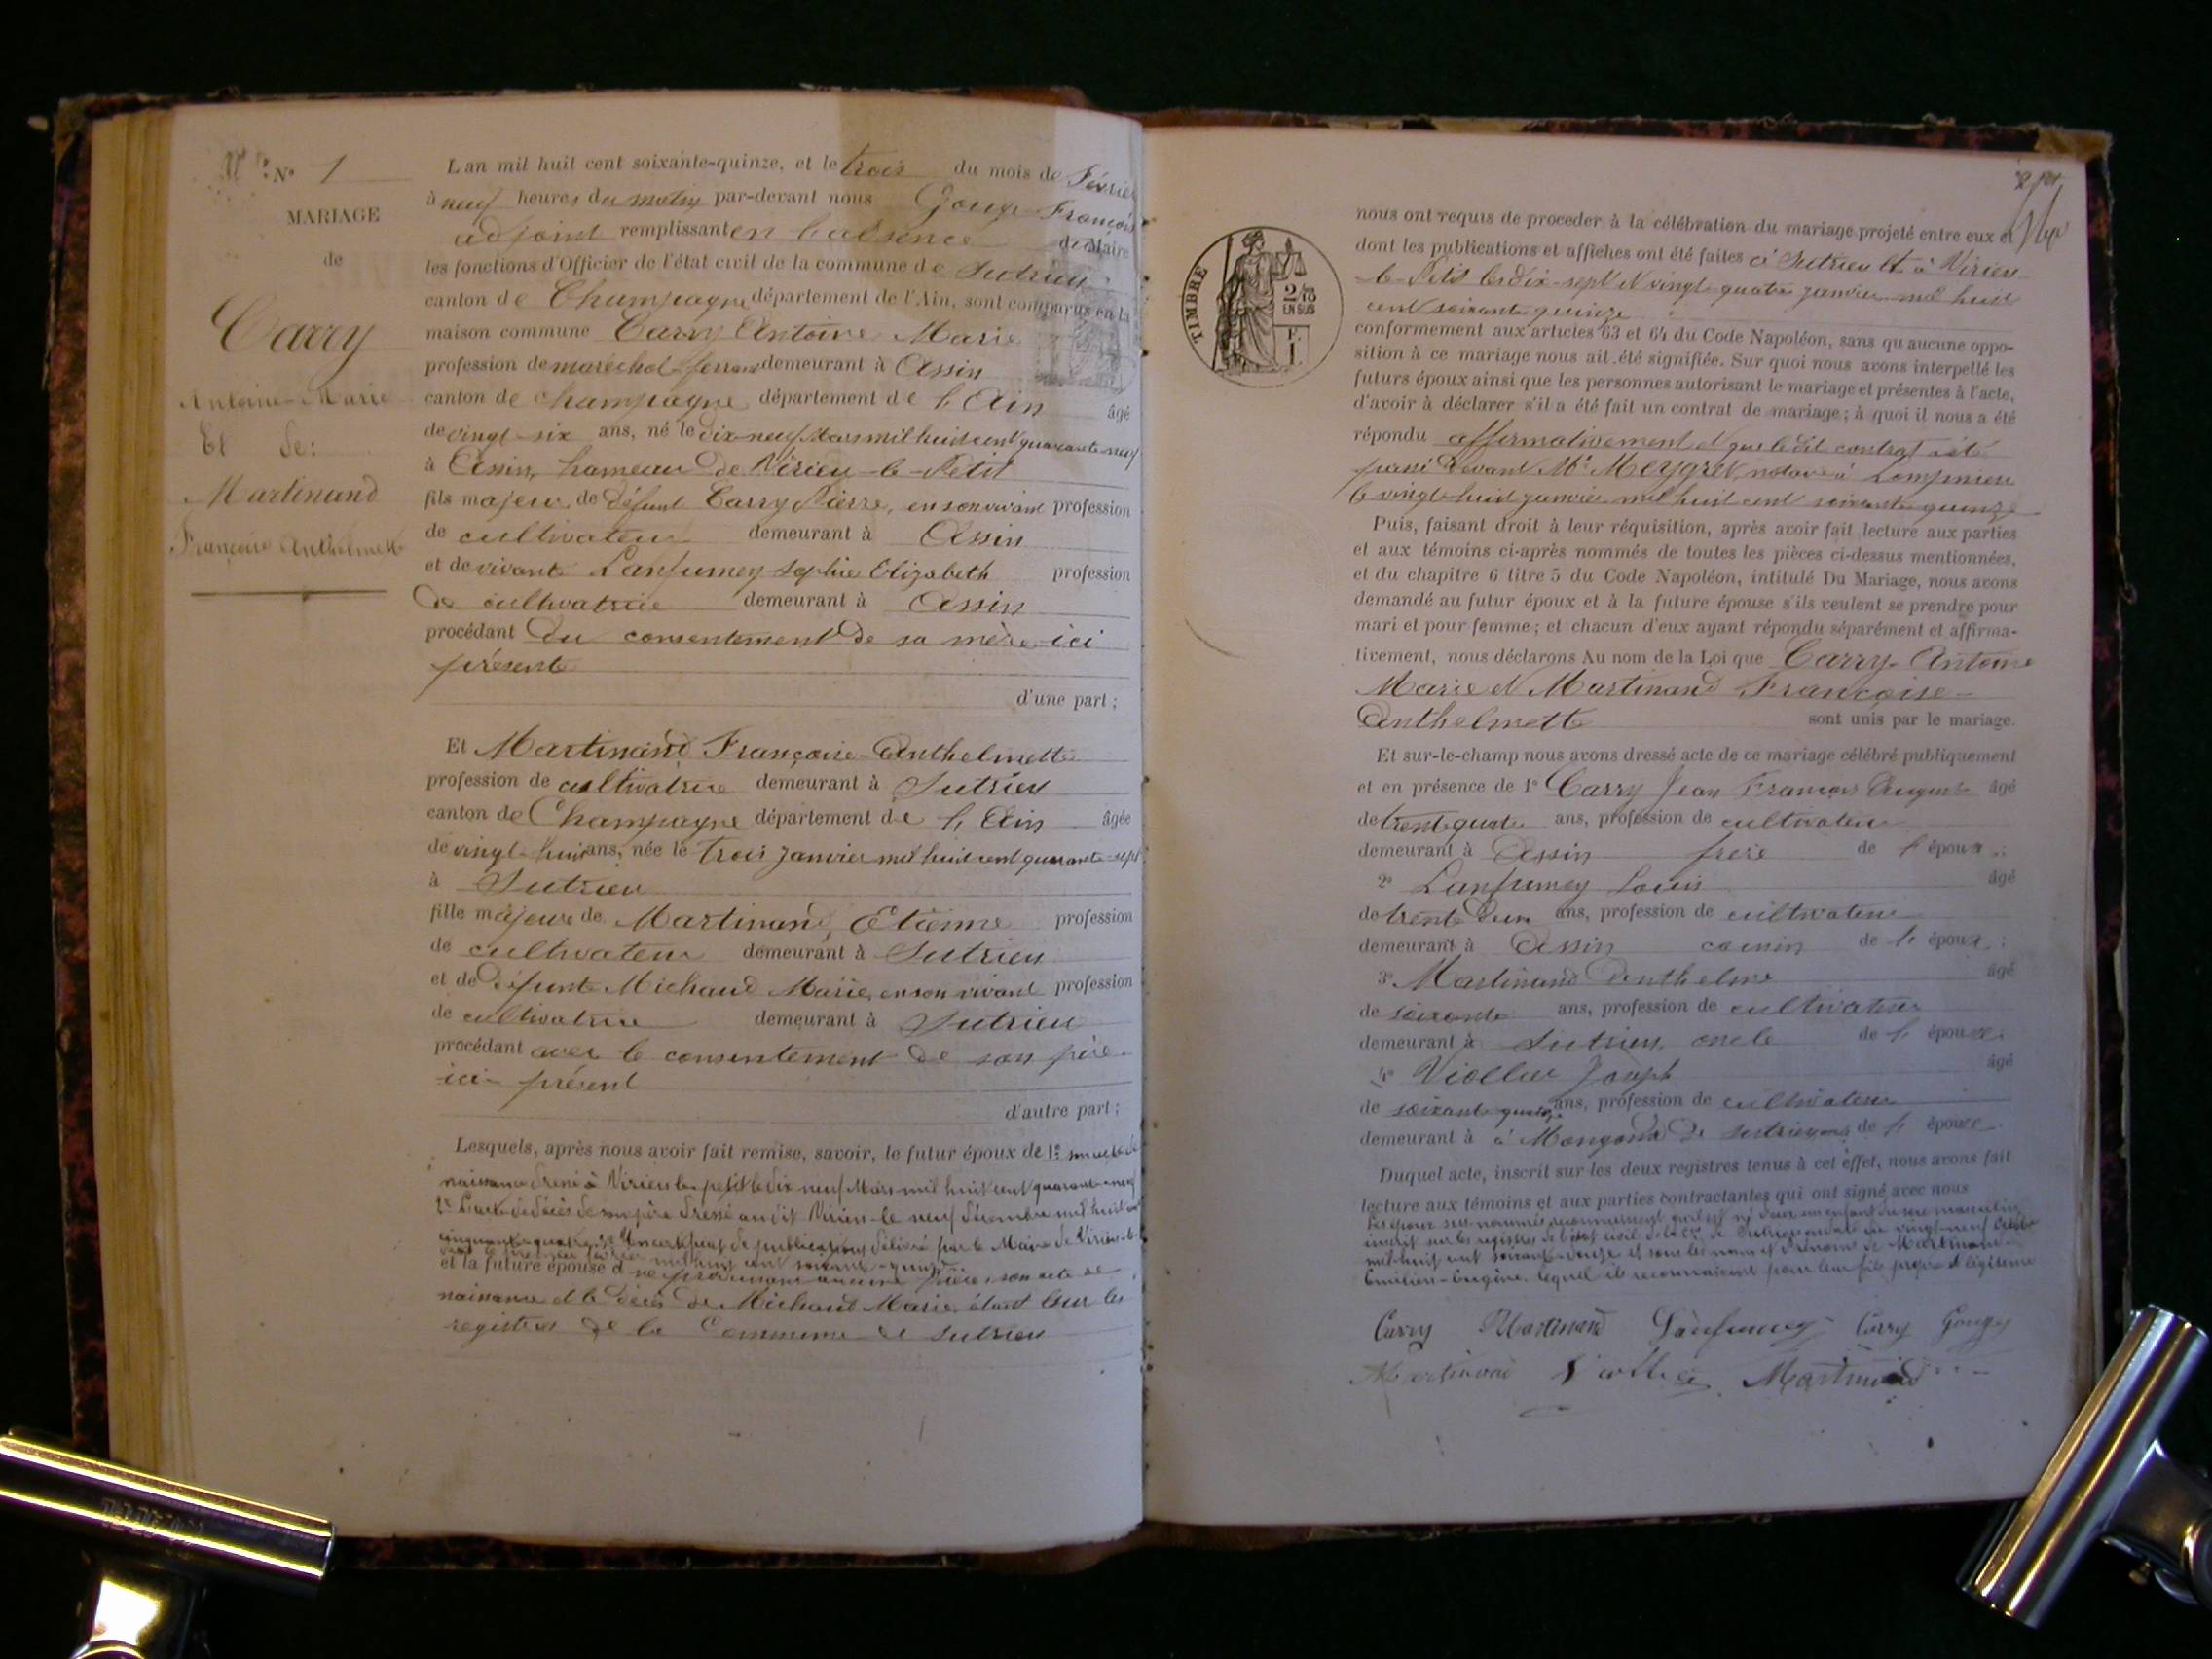 N° 1
MARIAGE
de
Carry
Antoine-Marie
Et de:
Martinand
Françoise Anthelmette
L'an mil huit cent soixante-quinze, et le trois du mois de Février
à neuf heures du matin par-devant nous Gouge François
adjoint remplissant en l'absence du Maire
les fonctions d'Officier de l'état civil de la commune de Sutrieu
canton de Champagne département de l'Ain, sont comparus en la
maison commune Carry Antoine Marie
profession de maréchal-ferrant demeurant à Assin
canton de Champagne département de l'Ain âgé
de vingt-six ans, né le dix-neuf Mars mil huit cent quarante-neuf
à Assin, hameau de Virieu-le-Petit
fils majeur de défunt Carry Pierre, en son vivant profession
de cultivateur demeurant à Assin
et de vivante Lanfumey Sophie Elizabeth profession
de cultivatrice demeurant à Assin
procédant du consentement de sa mère ici
présente
d'une part;
Et Martinand Françoise-Anthelmette
profession de cultivatrice demeurant à Sutrieu
canton de Champagne département de l'Ain âgée
de vingt-huit ans, née le trois janvier mil huit cent quarante-sept
à Sutrieu
fille majeure de Martinand, Etienne profession
de cultivateur demeurant à Sutrieu
et de défunte Michaud Marie, en son vivant profession
de cultivatrice demeurant à Sutrieu
procédant avec le consentement de son père
ici-présent
d'autre part;
Lesquels, après nous avoir fait remise, savoir, le futur époux de 1° son acte de
naissance dressé à Virieu le petit le dix neuf Mars mil huit cent quarante-neuf
2° L'acte de décès de son père dressé au dit Virieu le neuf décembre mil huit cent
cinquante-quatre, 3° Un certificat de publications délivré par le Maire de Virieu-le-
mil huit cent soixante-quinze
et la future épouse d ne produisant aucune pièce, son acte de
naissance et le décès de Michaud Marie étant sur les
registres de la Commune de Sutrieu
TIMBRE
2/10
EN SUS
nous ont requis de procéder à la célébration du mariage projeté entre eux et
dont les publications et affiches ont été faites à Sutrieu et à Virieu
le Petit les dix-sept et vingt quatre janvier mil huit
cent soixante quinze
conformément aux articles 63 et 64 du Code Napoléon, sans qu'aucune oppo-
sition à ce mariage nous ait été signifiée. Sur quoi nous avons interpellé les
futurs époux ainsi que les personnes autorisant le mariage et présentes à l'acte,
d'avoir à déclarer s'il a été fait un contrat de mariage; à quoi il nous a été
répondu affirmativement et que le dit contrat a été
passé devant Me Meygret notaire à Lompnieu
le vingt-huit janvier mil huit cent soixante quinze
Puis, faisant droit à leur réquisition, après avoir fait lecture aux parties
et aux témoins ci-après nommés de toutes les pièces ci-dessus mentionnées,
et du chapitre 6 titre 5 du Code Napoléon, intitulé Du Mariage, nous avons
demandé au futur époux et à la future épouse s'ils veulent se prendre pour
mari et pour femme; et chacun d'eux ayant répondu séparément et affirma-
tivement, nous déclarons Au nom de la Loi que Carry-Antoine
Marie et Martinand Françoise-
Anthelmette sont unis par le mariage.
Et sur-le-champ nous avons dressé acte de ce mariage célébré publiquement
et en présence de 1° Carry Jean François Auguste âgé
de trente quatre ans, profession de cultivateur
demeurant à Assin frère de l'époux;
2° Lanfumey Louis âgé
de trente d'un ans, profession de cultivateur
demeurant à Assin cousin de l'époux;
3° Martinand Anthelme âgé
de soixante ans, profession de cultivateur
demeurant à Sutrieu, oncle de l'épouse;
4° Viollet Joseph âgé
de soixante quatorze ans, profession de cultivateur
demeurant à de Sutrieu de l'épouse
Duquel acte, inscrit sur les deux registres tenus à cet effet, nous avons fait
lecture aux témoins et aux parties contractantes qui ont signé avec nous
Les époux sus-nommés reconnaissent qu'il est né d'eux un enfant du sexe masculin
inscrit sur les registres de l'état civil de la Cne de Sutrieu en date du vingt-neuf
mil-huit cent soixante-douze et sous les nom et prénoms de Martinand-
Emilien-Eugène, lequel ils reconnaissent pour leur fils propre et légitime
Carry Martinand Lanfumey Carry Gouge
Martinand Viollet Martinand